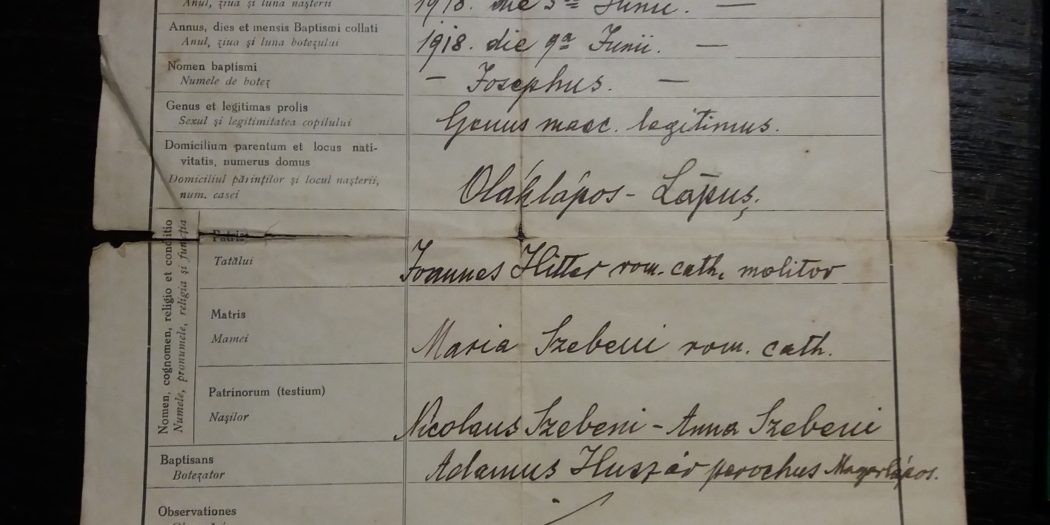 Anul, ziua și luna nașterii
1918. die 5ta Junii. —
Annus, dies et mensis Baptismi collati
Anul, ziua și luna botezului
1918. die 9a Junii. —
Nomen baptismi
Numele de botez
— Josephus. —
Genus et legitimas prolis
Sexul și legitimitatea copilului
Genus masc. legitimus.
Domicilium parentum et locus nati-
vitatis, numerus domus
Domiciliul părinților și locul nașterii,
num. casei
Oláhlápos - Lăpuș.
Nomen, cognomen, religio et conditio
Numele, pronumele, religia și funcția
Patris
Tatălui
Joannes Hitter rom. cath. molitor
Matris
Mamei
Maria Szebeni rom. cath.
Patrinorum (testium)
Nașilor
Nicolaus Szebeni - Anna Szebeni
Baptisans
Botezator
Adamus Huszár parochus Magyarlápos.
Observationes